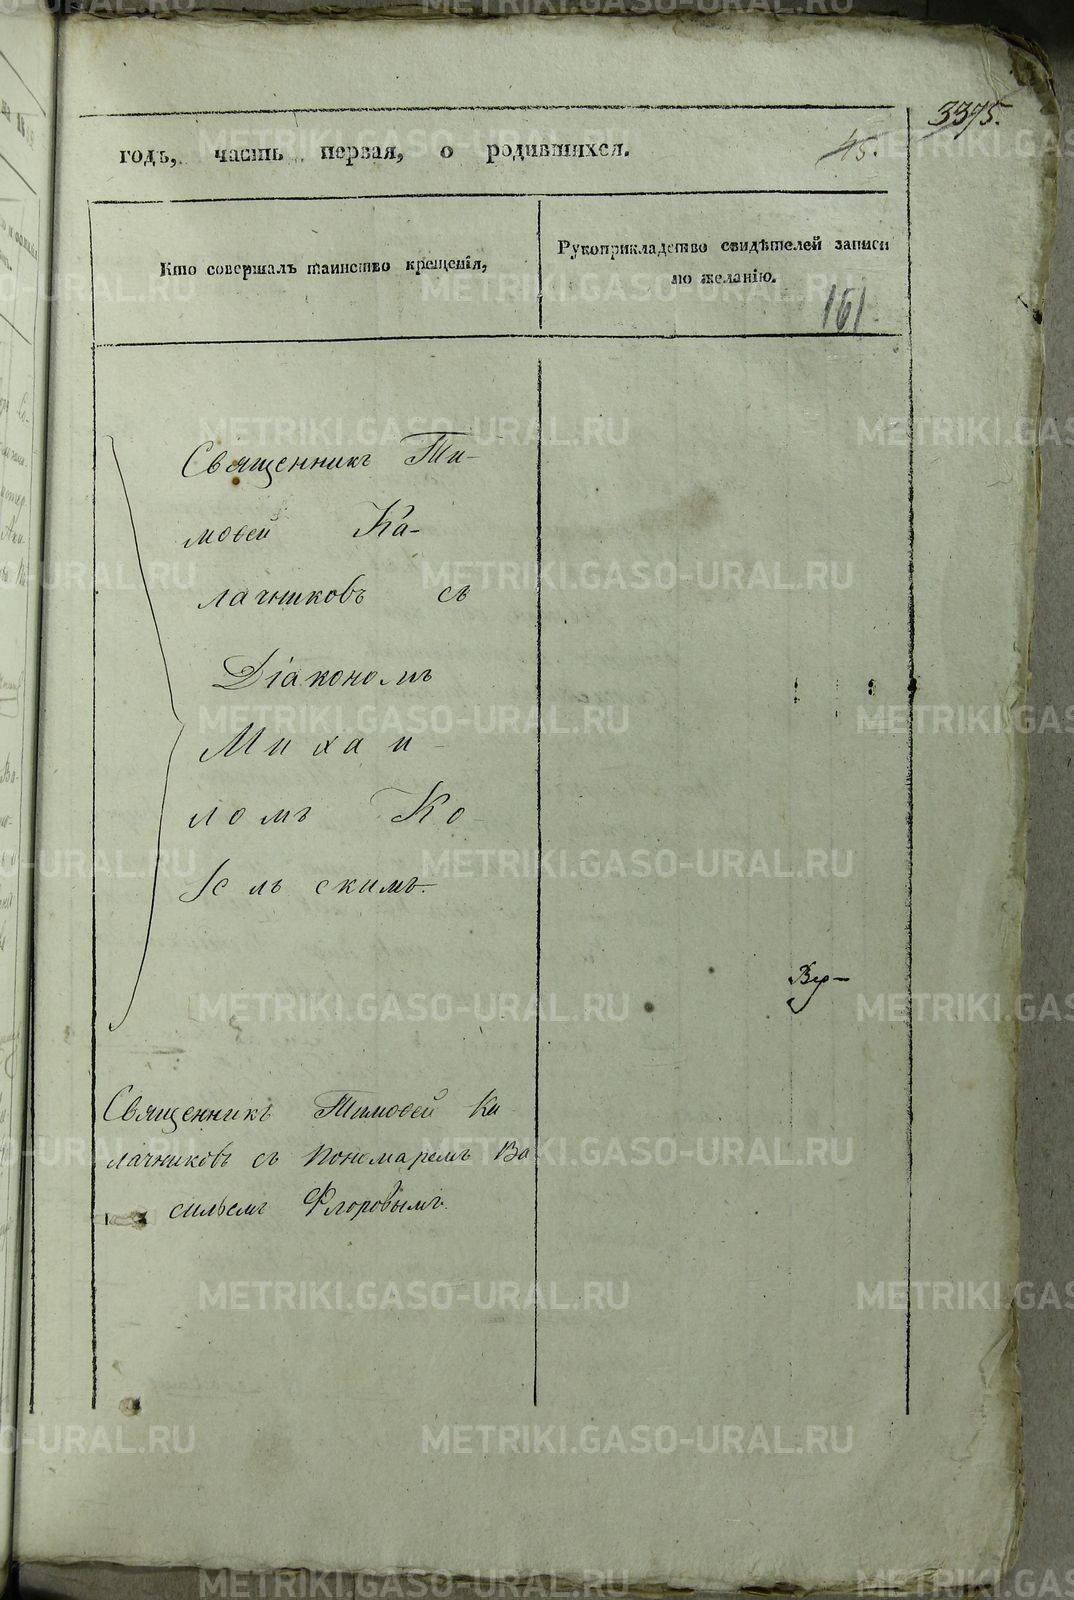 3375.
годъ, часть первая, о родившихся.
45.
Кто совершалъ таинство крещенія,
Рукоприкладство свидѣтелей записи
по желанію.
161
Священникъ Ти-
моѳей Ка-
лачниковъ съ
Діакономъ
Михаи-
ломъ Ко-
зельскимъ.
Священникъ Тимоѳей Ка
лачниковъ съ Пономаремъ Ва
сильемъ Флоровымъ.
METRIKI.GASO-URAL.RU